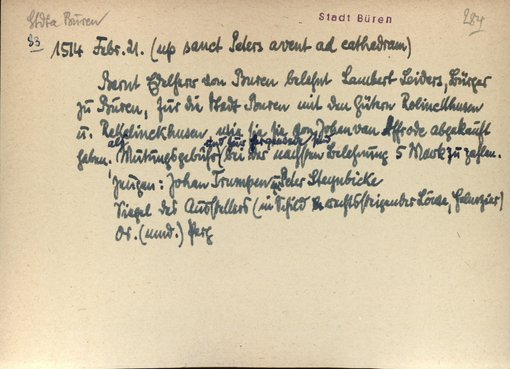 Stdta Büren
Stadt Büren
284
33
1514 Febr. 21. (up sanct Peters avent ad cathedram)
Bernt Edelherr von Buren belehnt Lambert Leiders, Bürger
zu Büren, für die Stadt Buren mit den Gütern
u. wie sie sie von Johan van Affrode abgekauft
haben. als Mutungsgebühr bei der nächsten Belehnung 5 Mark zu zahlen.
Zeugen: Johan Trumpen u. Peter Steynbicke
Siegel des Ausstellers (im Schild rechtssteigender Löwe, Helmzier)
Or. (mnd.) Perg